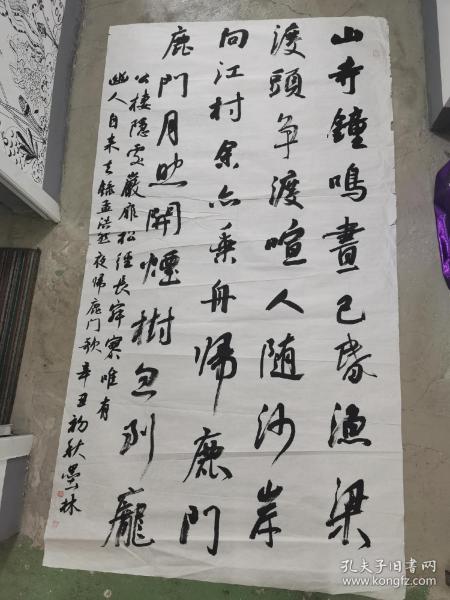 山寺鐘鳴晝已昏漁梁
渡頭争渡喧人随沙岸
向江村余亦乘舟歸鹿門
鹿門月照開煙樹忽到龐
公棲隱處巖扉松徑長寂寥唯有
此人自来去錄孟浩然夜歸鹿门歌辛丑初秋墨林
孔夫子旧书网
www.kongfz.com